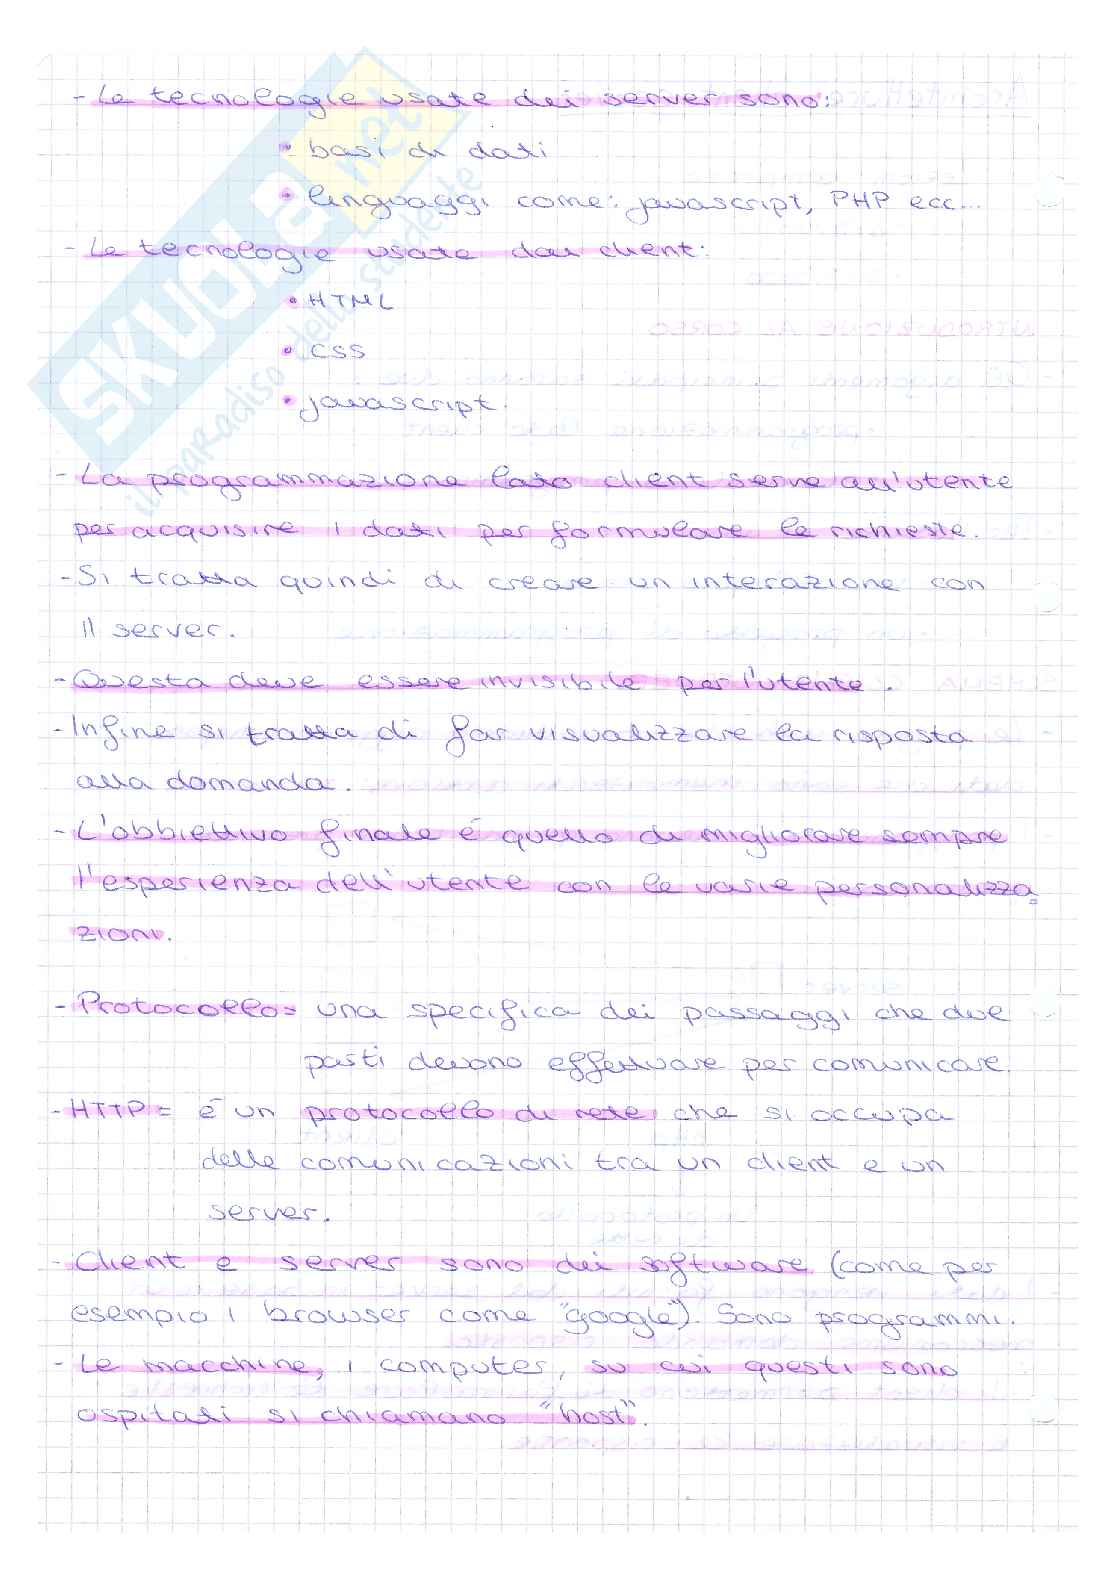 - Le tecnologie usate dei server sono:
• basi di dati
• linguaggi come: javascript, PHP ecc...
- Le tecnologie usate dai client:
• HTML
• CSS
• javascript.
- La programmazione lato client serve all'utente
per acquisire i dati per formulare le richieste.
- Si tratta quindi di creare un interazione con
il server.
- Questa deve essere invisibile per l'utente.
- Infine si tratta di far visualizzare la risposta
alla domanda.
- L'obbiettivo finale é quello di migliorare sempre
l'esperienza dell'utente con le varie personalizza=
zioni.
- Protocollo= una specifica dei passaggi che due
parti devono effettuare per comunicare.
- HTTP= é un protocollo di rete che si occupa
delle comunicazioni tra un client e un
server.
- Client e server sono dei software (come per
esempio i browser come "google"). Sono programmi.
- Le macchine, i computer, su cui questi sono
ospitati si chiamano "host".
SKUOLA.net
il paradiso dello studente